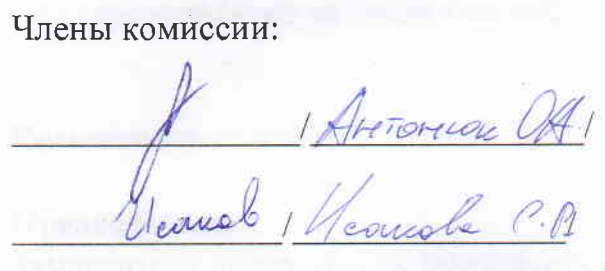 Члены комиссии:
/ Антонюк О.А. /
Исаков / Исакова С.В.